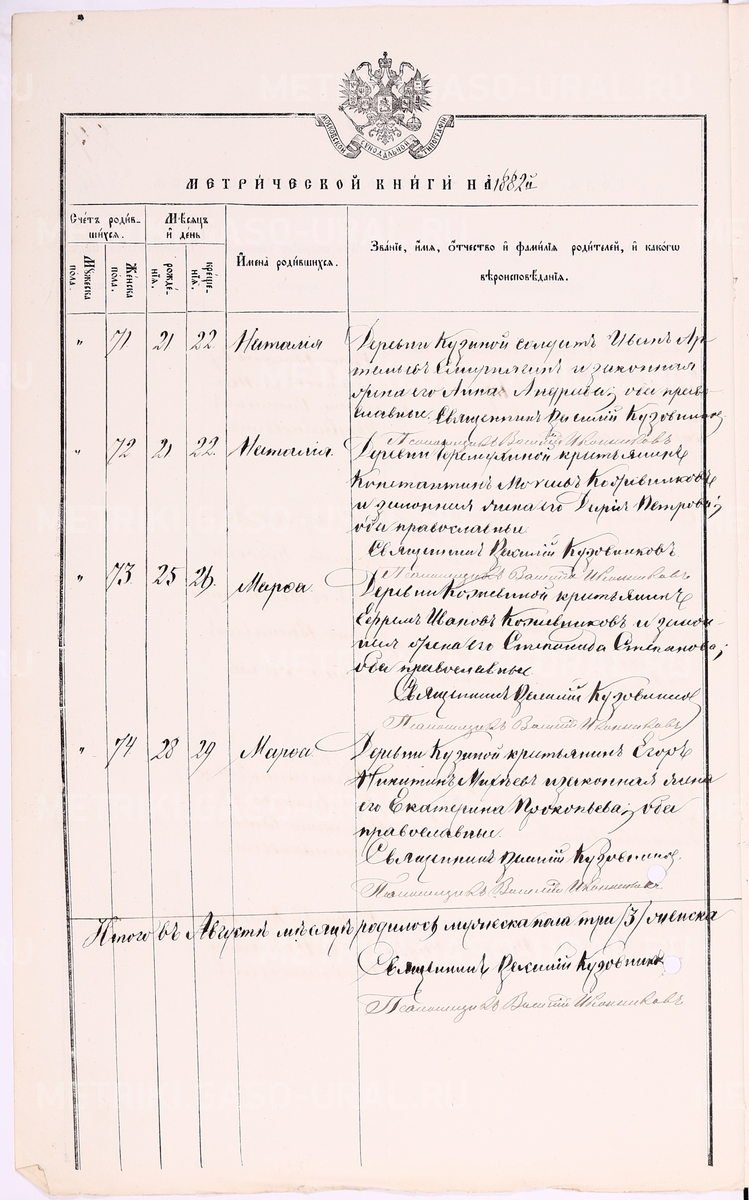 МОСКОВСКОЙ СѴНОДАЛЬНОЙ ТИПОГРАФІИ
МЕТРИ́ЧЕСКОЙ КНИ́ГИ НА 1882й
Сче́тъ роди́в-
шихся.
Мꙋжеска по́ла.
Же́нска по́ла.
Мѣ́сяцъ и҆ де́нь
рожде́-нїѧ.
креще́-нїѧ.
И҆мена̀ роди́вшихся.
Зва́нїе, и҆́мѧ, ѻ҆́тчество и҆ фами́лїѧ роди́телей, и҆ како́гѡ
вѣроисповѣ́данїѧ.
" 71 21 22 Наталія
Деревни Кузиной солдатъ Иванъ Ар-
темьевъ и законная
жена его Анна Андреева; оба право-
славные. Священникъ Василій Кузовников
Псаломщикъ Василій Иконниковъ
" 72 21 22 Наталія.
Деревни крестьянинъ
Константинъ Кожевниковъ
и законная жена его Дарія Петрова;
оба православные
Священникъ Василій Кузовниковъ
Псаломщикъ Василій Иконниковъ
" 73 25 26. Марѳа
Деревни Кожевиной крестьянинъ
Ефремъ Ивановъ Кожевниковъ и закон-
ная жена его Степанида Степанова;
оба православные
Священникъ Василій Кузовников
Псаломщикъ Василій Иконниковъ
" 74 28 29 Марѳа
Деревни Кузиной крестьянинъ Егоръ
Никитинъ Михѣевъ и законная жена
его Екатерина Прокопьева; оба
православные.
Священникъ Василій Кузовников.
Псаломщикъ Василій Иконниковъ.
Итого въ Августѣ мѣсяцѣ родилось мужеска пола три /3/ женска
Священникъ Василій Кузовников
Псаломщикъ Василій Иконниковъ
METRIKI.GASO-URAL.RU